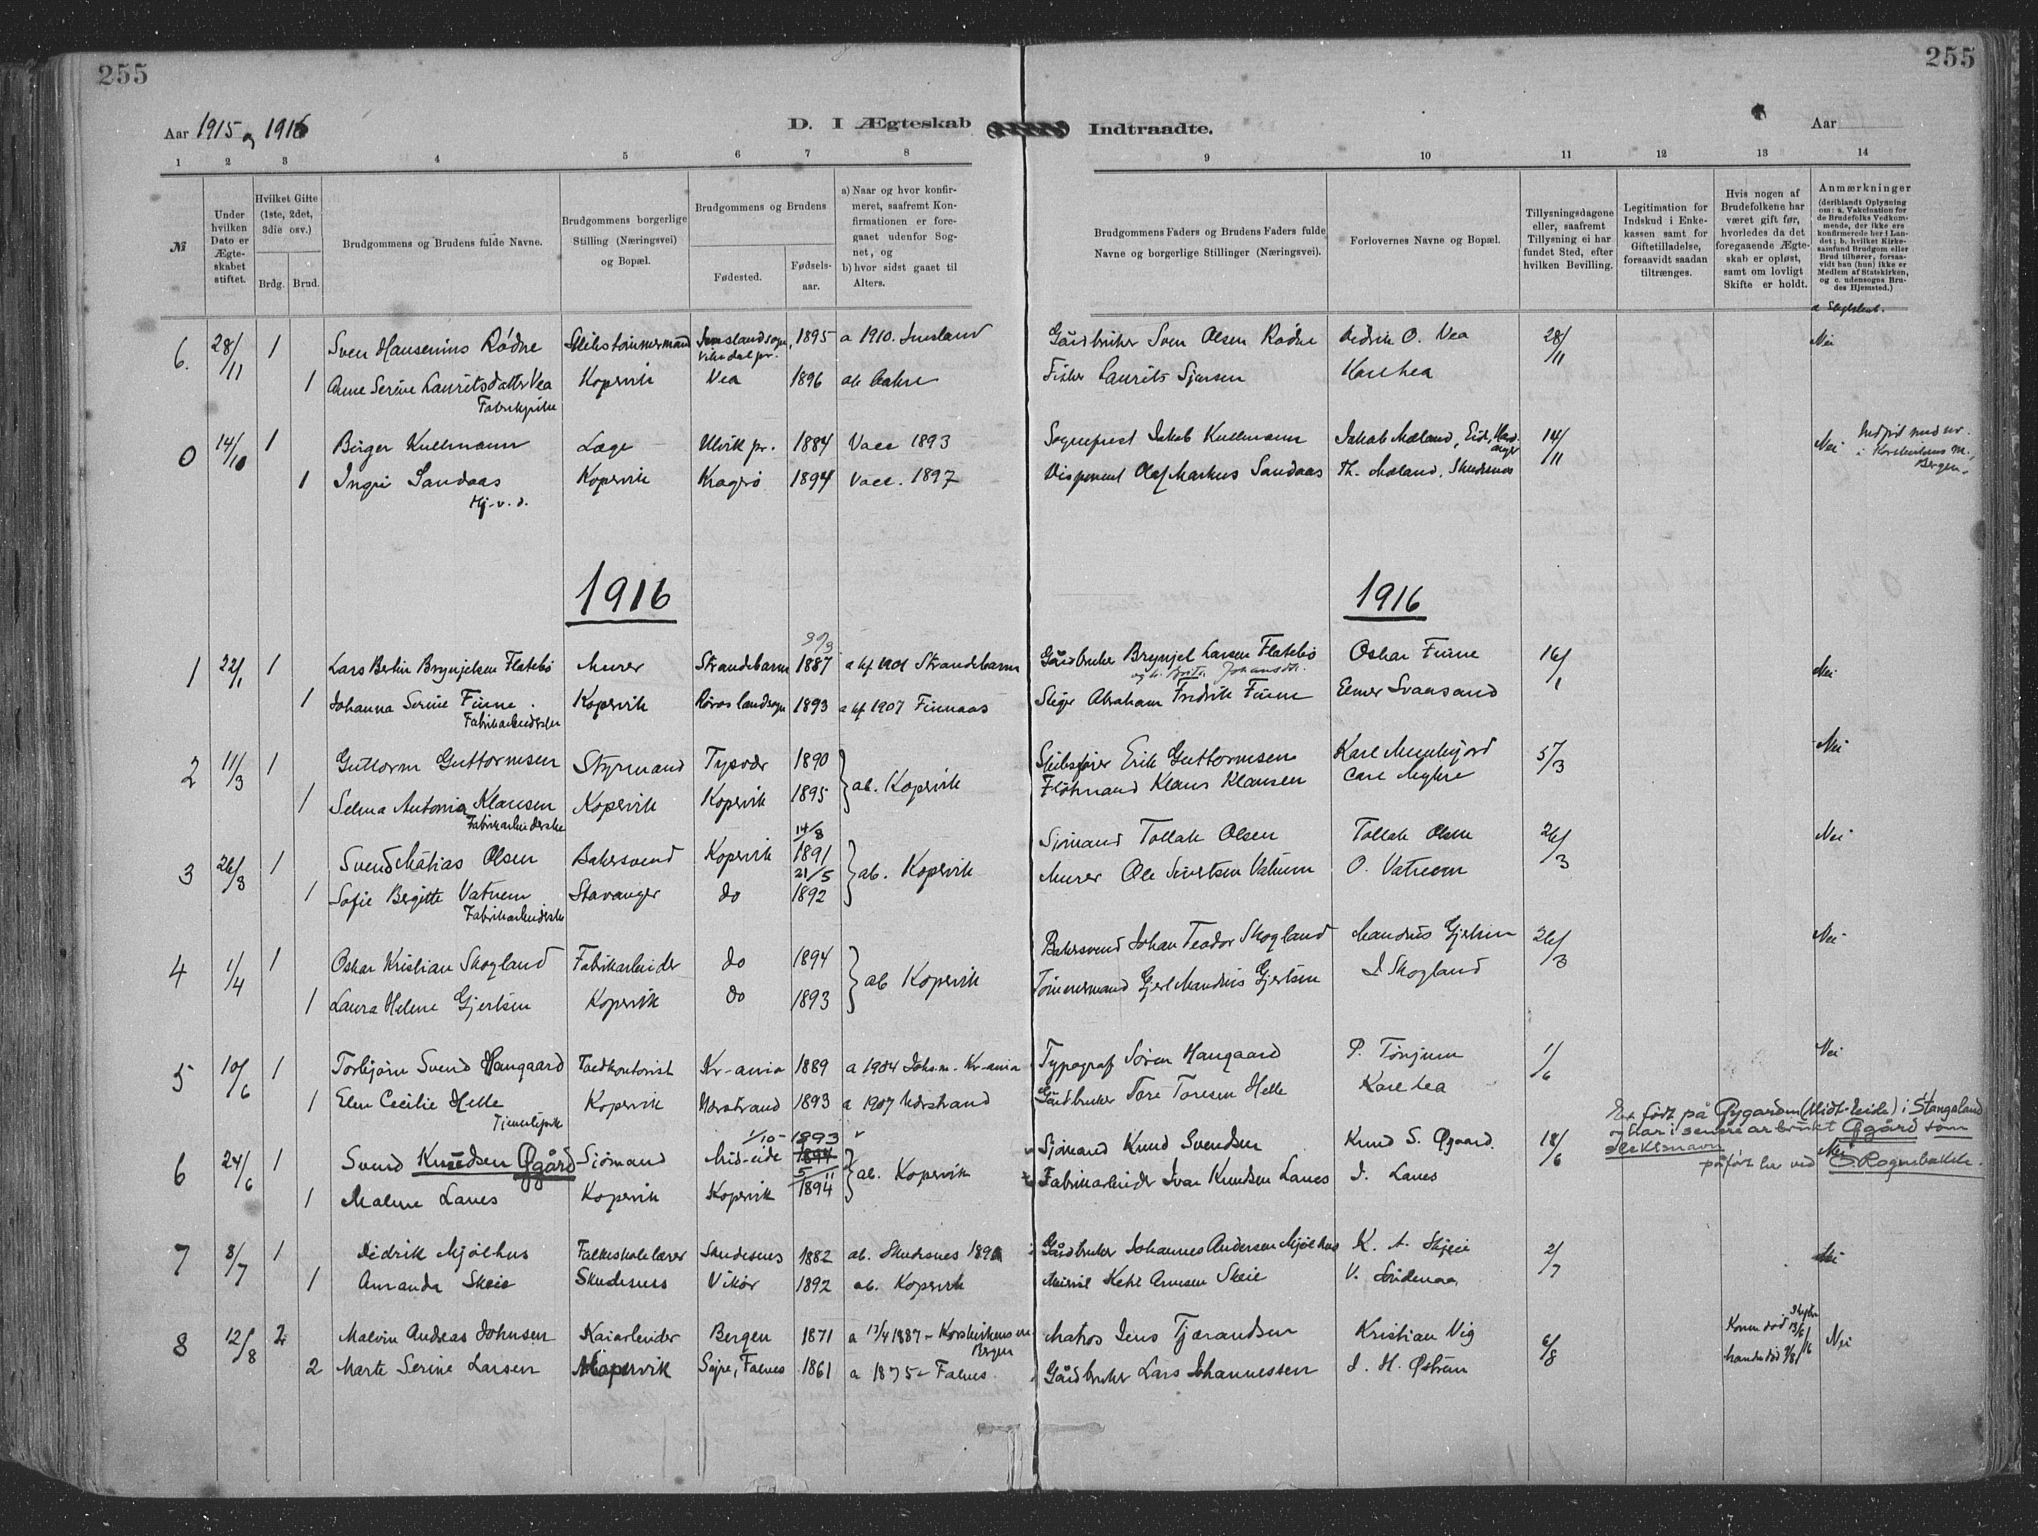 255
255
Aar 1915 og 1916
D. I Ægteskab
Indtraadte.
Aar
1 2 3 4 5 6 7 8
9 10 11 12 13 14
№
Under hvilken Dato er Ægteskabet stiftet.
Hvilket Gifte (1ste, 2det, 3die osv.)
Brdg. Brud.
Brudgommens og Brudens fulde Navne.
Brudgommens borgerlige Stilling (Næringsvei) og Bopæl.
Brudgommens og Brudens
Fødested.
Fødselsaar.
a) Naar og hvor konfirmeret, saafremt Konfirmationen er foregaaet udenfor Sognet, og
b) hvor sidst gaaet til Alters.
Brudgommens Faders og Brudens Faders fulde Navne og borgerlige Stillinger (Næringsvei).
Forlovernes Navne og Bopæl.
Tillysningsdagene eller, saafremt Tillysning ei har fundet Sted, efter hvilken Bevilling.
Legitimation for Indskud i Enkekassen samt for Giftetilladelse, forsaavidt saadan tiltrænges.
Hvis nogen af Brudefolkene har været gift før, hvorledes da det foregaaende Ægteskab er opløst, samt om lovligt Skifte er holdt.
Anmærkninger (deriblandt Oplysning om: a. Vakcination for de Brudefolks Vedkommende, der ikke ere konfirmerede her i Landet; b. hvilket Kirkesamfund Brudgom eller Brud tilhører, forsaavidt han (hun) ikke er Medlem af Statskirken, og c. udensogns Brudes Hjemsted.)
6. 28/11 1 Sven Hansenius Rødne Skibstømmermand Imslandsogn, Vikedal pr. 1895 a 1910. Imsland Gårdbruker Sven Olsen Rødne Didrik O. Vea 28/11 Nei
1 Anne Serine Lauritsdatter Vea Kopervik Vea 1896 ab Fisker Laurits Karl Lea
Fabrikpike
0 14/10 1 Birger Kullmann Læge Ulvik pr. 1884 Vacc 1893 Sogneprest Jakob Kullmann Jakob Mæland, Eid, Hardanger 14/11 Nei
1 Ingri Sandaas Kopervik Kragerø 1894 Vacc. 1897 Disponent Olaf Markus Sandaas Th. Mæland, Skudesnes
Hj. v. d.
i Korskirkens m., Bergen.
1916
1916
30/3
1 22/1 1 Lars Bertin Brynjelsen Flatebø Murer Strandebarm 1887 a kf 1901 Strandebarm Gårdbruker Brynjel Larsen Flatebø Oskar Finne 16/1 Nei
og h. Brita Johansdtr.
1 Johanna Serine Finne. Kopervik Røros landsogn 1893 a kf 1907 Finnaas Stiger Abraham Fredrik Finne Elmer Svansand
Fabrikarbeiderske
2 11/3 1 Guttorm Guttormsen Styrmand Tysvær 1890 ab. Kopervik Skibsfører Erik Guttormsen Karl 5/3 Nei
1 Selma Antonia Klausen Kopervik Kopervik 1895 Fløtmand Klaus Klausen Carl Myhre
Fabrikarbeiderske
14/8
3 26/3 1 Svend Mathias Olsen Bakersvend Kopervik 1891 ab. Kopervik Sjømand Tollak Olsen Tollak Olsen 26/3 Nei
21/5
1 Sofie Bergitte Vatnem Stavanger do 1892 Murer Ole Sivertsen Vatnem O. Vatnem
Fabrikarbeiderske
4 1/4 1 Oskar Kristian Skogland Fabrikarbeider do 1894 ab Kopervik Bakersvend Johan Teodor Skogland Mandrus Gjertsen 26/3 Nei
1 Laura Helene Gjertsen Kopervik do 1893 Tømmermand Gjert Mandrus Gjertsen J Skogland
5 10/6 1 Torbjørn Svend Haugaard Kr-ania 1889 a 1904 Johs.m. Kr-ania Typograf Søren Haugaard P. Tønjum 1/6 Nei
1 Elen Cecilie Helle Kopervik Nærstrand 1893 a 1907 Nærstrand Gårdbruker Tore Toresen Helle Karl Lea
Tjenestpike
Er født på Øygarden (Midt-Eide) i Stangeland
og har i senere år brukt Øgård som
slektsnavn
påført her ved S. Rognebakke.
1/10 - 1893
6 24/6 1 Svend Knudsen Øgård Sjømand Mid-eide 1894 ab. Kopervik Sjømand Knud Svendsen Knud S. Øgaard 18/6 Nei
5/11
1 Malene Lanes Kopervik Kopervik 1894 Fabrikarbeider Ivar Knudsen Lanes I. Lanes
7 8/7 1 Didrik Mjølhus Folkeskolelærer Skudesnes 1882 ab. Skudesnes Gårdbruker Johannes Andersen Mjølhus K. A. Skjeie 2/7 Nei
1 Amanda Skeie Skudesnes Vikør 1892 ab. Kopervik Ketil Arnesen Skeie V.
8 12/8 2 Malvin Andreas Johnsen Kaiarbeider Bergen 1871 a 17/4 1887 - Korskirkens m Bergen Matros Jens Tjerandsen Kristian Vig 6/8 Konen død 13/6 16 Nei
2 Marte Serine Larsen Kopervik Sejre, Falnes 1861 a 1875 - Falnes. Gårdbruker Lars Johannessen J. H. Østrem Manden død